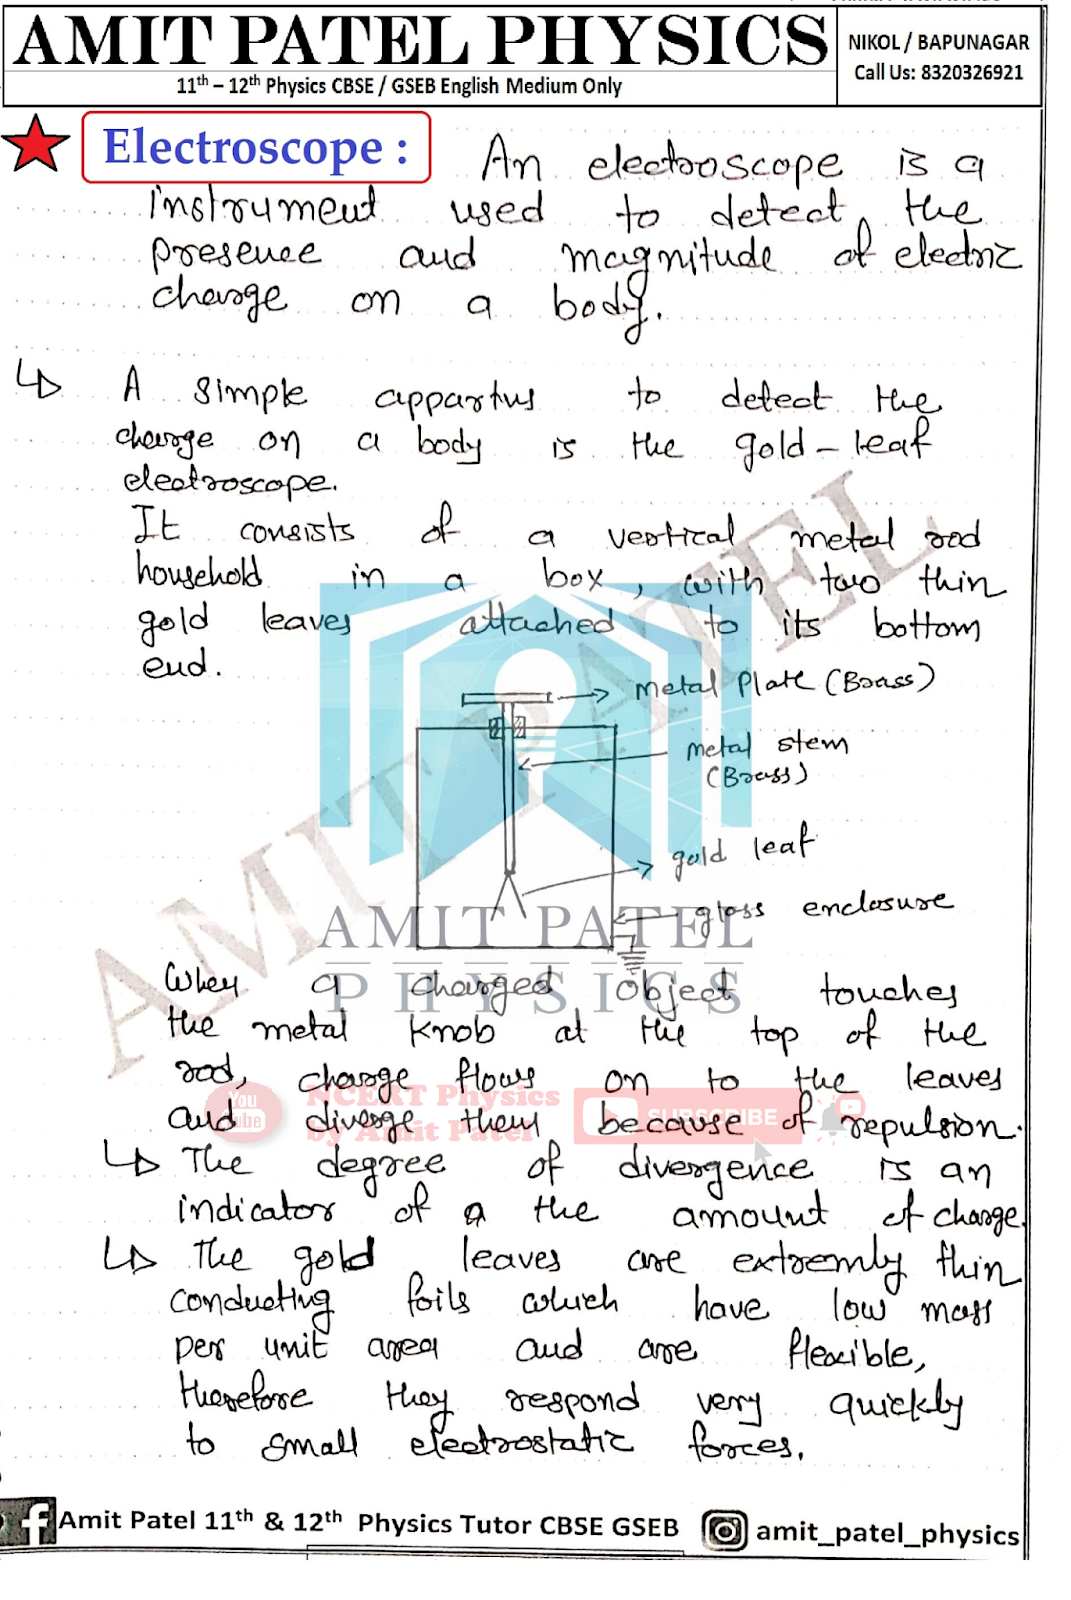 AMIT PATEL PHYSICS
11th – 12th Physics CBSE / GSEB English Medium Only
NIKOL / BAPUNAGAR
Call Us: 8320326921
Electroscope :
An electroscope is a
instrument used to detect the
presence and magnitude of electric
charge on a body.
A simple appartus to detect the
charge on a body is the gold - leaf
electroscope.
It consists of a vertical metal rod
household in a box, with two thin
gold leaves attached to its bottom
end.
metal plate (Brass)
metal stem
(Brass)
gold leaf
glass enclosure
AMIT PATEL
AMIT PATEL
PHYSICS
When a charged object touches
the metal knob at the top of the
rod, charge flows on to the leaves
and diverge them because of repulsion.
You
Tube
NCERT Physics
by Amit Patel
SUBSCRIBE
The degree of divergence is an
indicator of a the amount of charge.
The gold leaves are extremly thin
conducting foils which have low mass
per unit area and are flexible,
therefore they respond very quickly
to small electrostatic forces.
Amit Patel 11th & 12th Physics Tutor CBSE GSEB
amit_patel_physics